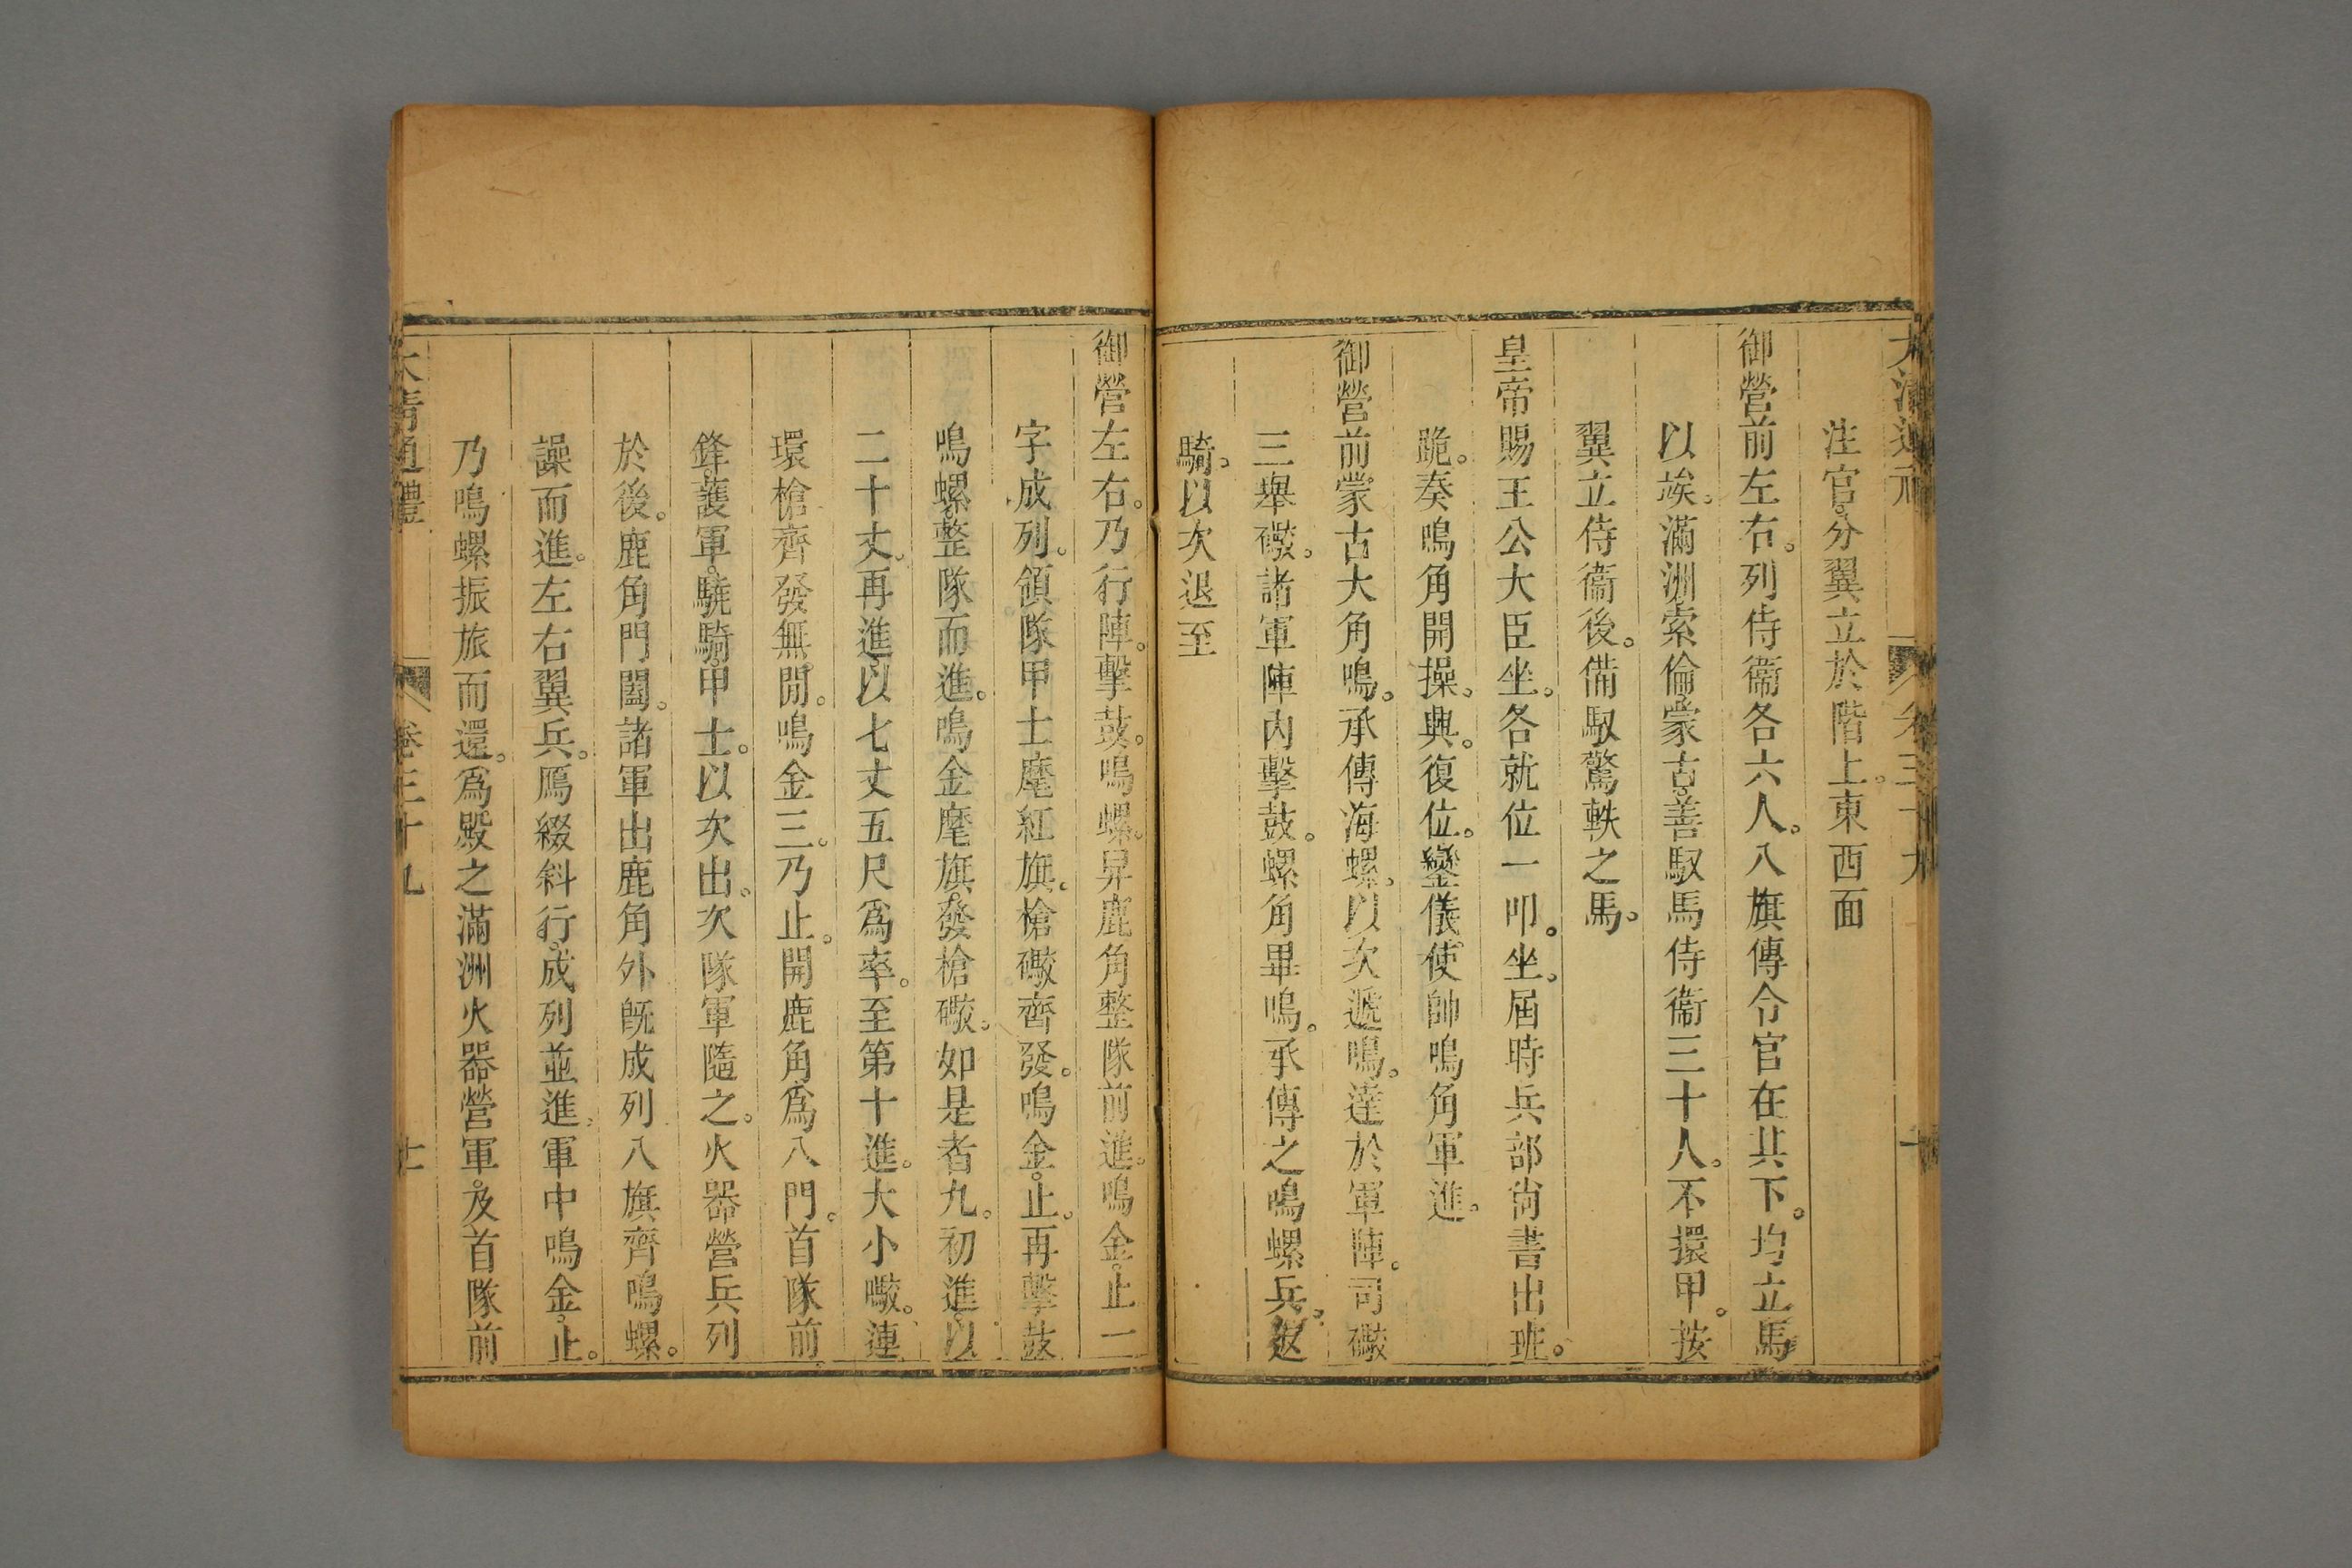 大清通禮 卷三十九
注官。分翼立於階上。東西面
御營前左右。列侍衞各六人。八旗傳令官在其下。均立馬
以竢。滿洲索倫蒙古。善馭馬侍衞三十人。不擐甲。按
翼立侍衞後。備馭驚軼之馬。
皇帝賜王公大臣坐。各就位一叩。坐。屆時兵部尚書出班。
跪。奏鳴角開操。興。復位。鑾儀使帥鳴角軍進。
御營前。蒙古大角鳴。承傳海螺。以次遞鳴。達於軍陣。司礮
三舉礮。諸軍陣內擊鼓。螺角畢鳴。承傳之鳴螺兵。返
騎。以次退至
御營左右。乃行陣。擊鼓。鳴螺。舁鹿角整隊前進。鳴金。止一
字成列。領隊甲士麾紅旗。槍礮齊發。鳴金。止。再擊鼓
鳴螺。整隊而進。鳴金麾旗。發槍礮。如是者九。初進。以
二十丈。再進。以七丈五尺爲率。至第十進。大小礮。連
環槍齊發無間。鳴金三。乃止。開鹿角爲八門。首隊前
鋒。護軍。驍騎。甲士。以次出。次隊軍隨之。火器營兵列
於後。鹿角門闔。諸軍出鹿角外旣成列八旗齊鳴螺。
譟而進。左右翼兵。鴈綴斜行。成列並進。軍中鳴金。止。
乃鳴螺振旅而還。爲殿之滿洲火器營軍。及首隊前
大清通禮 卷三十九 十